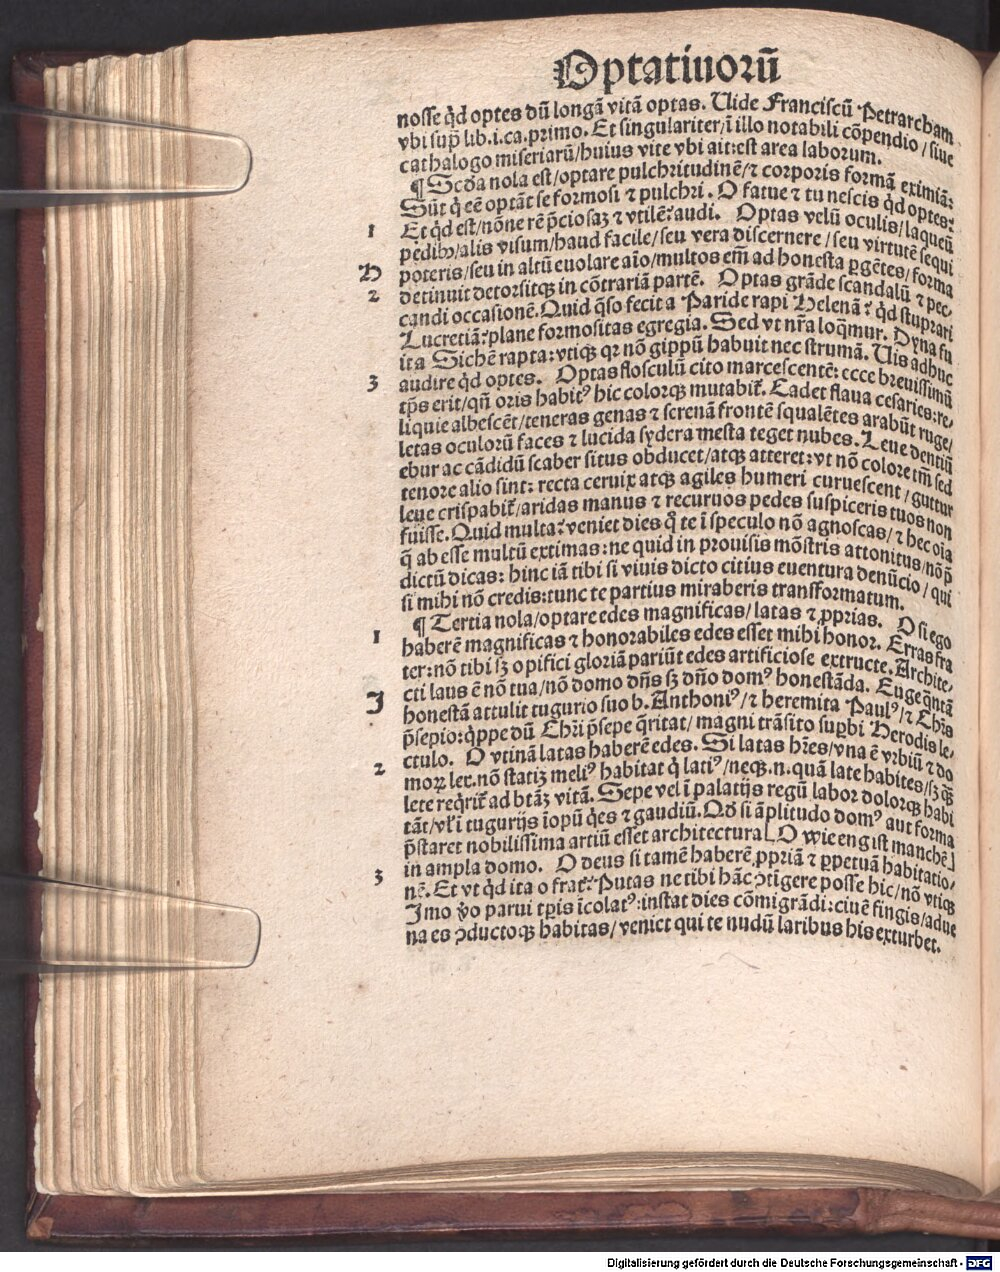 Optatiuorū
nosse qd optes dū longā vitā optas. Uide Franciscū Petrarcham
vbi sup̄ lib.i.ca.primo. Et singulariter/ī illo notabili cōpendio/siue
cathalogo miseriarū/huius vite vbi ait:est area laborum.
¶ Scda nola est/optare pulchritudinē/⁊ corporis formā eximiā:
Sūt q̇ eē optāt se formosi ⁊ pulchri. O fatue ⁊ tu nescis qd optes:
1 Et qd est/nōne rē p̄ciosaꝫ ⁊ vtilē? audi. Optas velū oculis/laqueū
pedibꝰ/alis visum/haud facile/seu vera discernere/seu virtutē sequi
H poteris/seu in altū euolare aīo/multos em̄ ad honesta ꝑgētes/forma
2 detinuit detorsitqꝫ in cōtrariā partē. Optas grāde scandalū ⁊ pec-
candi occasionē. Quid q̄so fecit a Paride rapi Helenā? qd stuprari
Lucretiā? plane formositas egregia. Sed vt nr̄a loq̄mur. Dyna fu
ita Sichē rapta: vtiqꝫ qr nō gippū habuit nec strumā. Uis adhuc
3 audire qd optes. Optas flosculū cito marcescentē: ecce breuissimū
tp̄s erit/qn̄ oris habitꝰ hic colorqꝫ mutabit̄. Cadet flaua cesaries:re-
liquie albescēt/teneras genas ⁊ serenā frontē squalētes arabūt ruge/
letas oculorū faces ⁊ lucida sydera mesta teget nubes. Leue dentiū
ebur ac cādidū scaber situs obducet/atqꝫ atteret: vt nō colore tm̄ sed
tenore alio sint: recta ceruix atqꝫ agiles humeri curuescent/guttur
leue crispabit̄/aridas manus ⁊ recuruos pedes suspiceris tuos non
fuisse. Quid multa? veniet dies q̄ te ī speculo nō agnoscas/⁊ hec oīa
q̄ abesse multū extimas: ne quid in prouisis mōstris attonitus/nō p̄
dictū dicas: hinc iā tibi si viuis dicto citius euentura denūcio/qui
si mihi nō credis:tunc te partius miraberis transformatum.
¶ Tertia nola/optare edes magnificas/latas ⁊ ꝓprias. O si ego
1 haberē magnificas ⁊ honorabiles edes esset mihi honor. Erras fra
ter: nō tibi sꝫ opifici gloriā pariūt edes artificiose extructe. Archite-
cti laus ē nō tua/nō domo dn̄s sꝫ dn̄o domꝰ honestāda. Euge q̄ntā
J honestā attulit tugurio suo b. Anthoniꝰ/⁊ heremita Paulꝰ/⁊ Chr̄s
p̄sepio: q̇ppe dū Chr̄i p̄sepe q̄ritat/magni trāsito supbi Herodis le-
ctulo. O vtinā latas haberē edes. Si latas hr̄es/vna ē vrbiū ⁊ do
2 moꝝ lex. nō statiꝫ meliꝰ habitat q̇ latiꝰ/neqꝫ.n. quā late habites/sꝫ qꝫ
lete req̇rit̄ ad btāꝫ vitā. Sepe vel ī palatijs regū labor dolorqꝫ habi
tāt/vl̄ ī tugurijs īopū q̇es ⁊ gaudiū. Qd si āplitudo domꝰ aut forma
p̄staret nobilissima artiū esset architectura [O wie eng ist manchē]
in ampla domo. O deus si tamē haberē ꝓpriā ⁊ ꝑpetuā habitatio/
3 nē. Et vt qd ita o frat̄? Putas ne tibi hāc ꝯtīgere posse hic/nō vtiqꝫ
Jmo v̄o parui tp̄is īcolatꝰ: instat dies cōmigrādi: ciuē fingis/adue
na es ꝯductoqꝫ habitas/veniet qui te nudū laribus his exturbet.
Digitalisierung gefördert durch die Deutsche Forschungsgemeinschaft - DFG